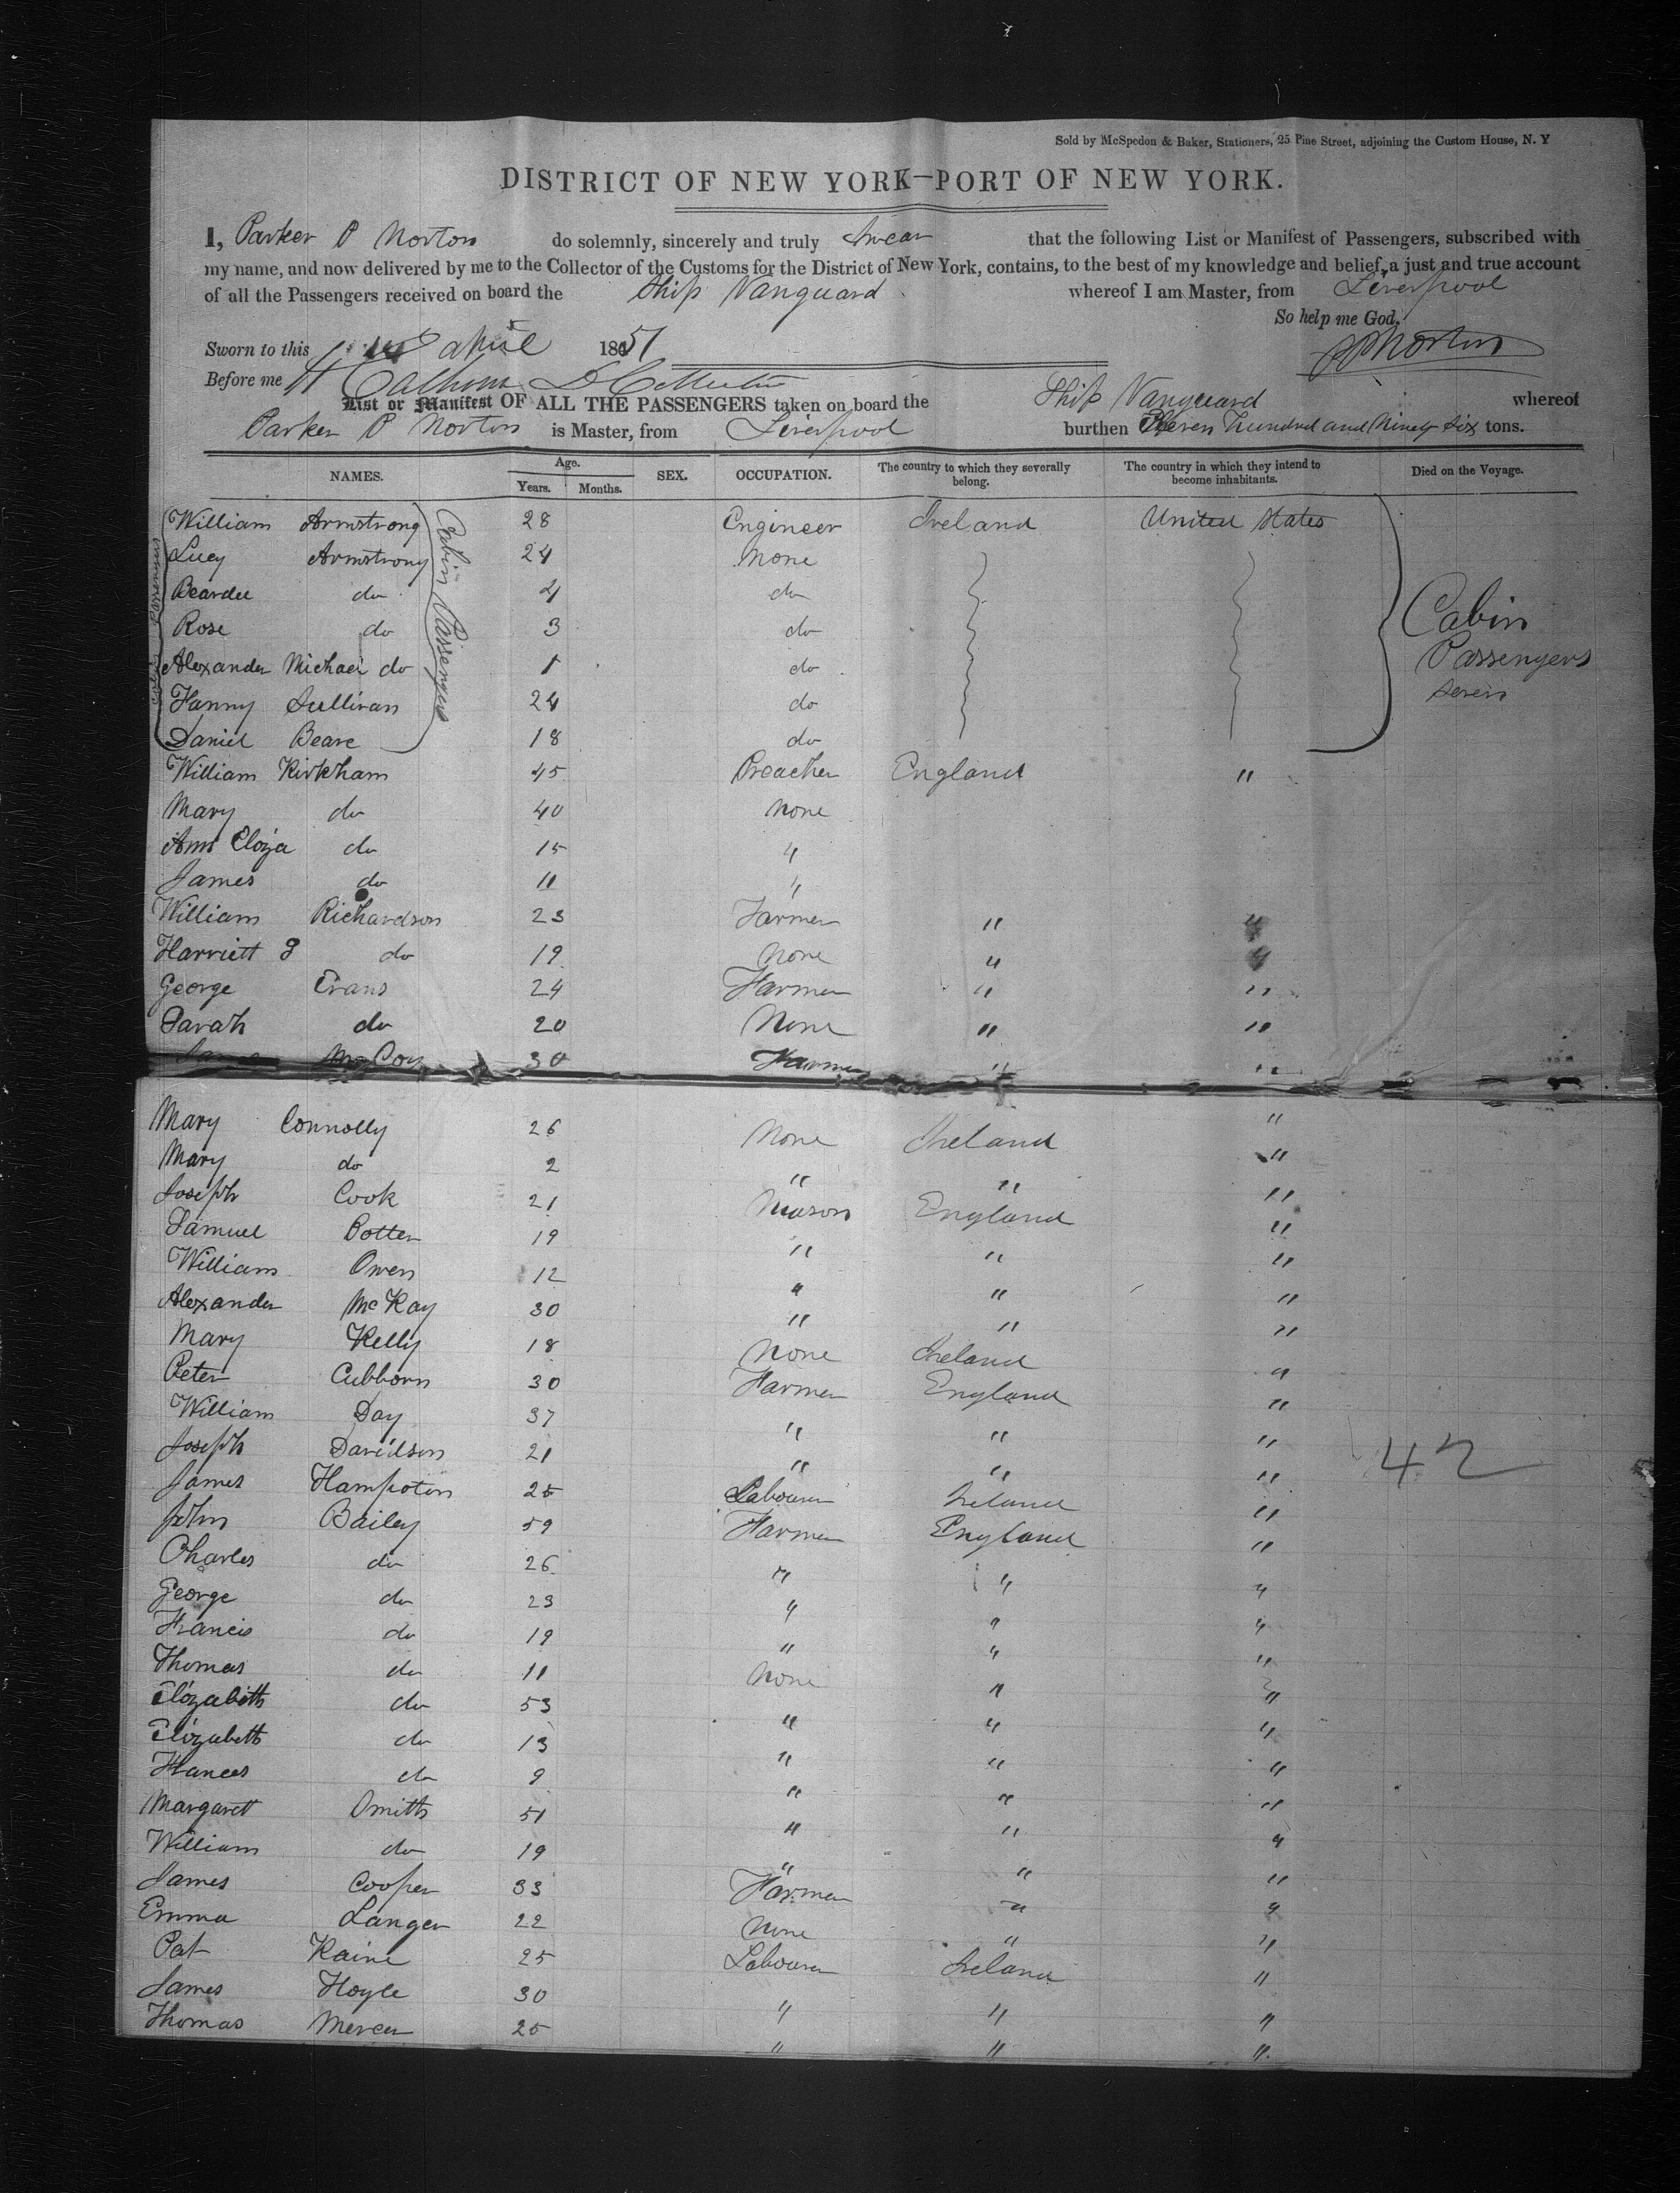 Sold by McSpedon & Baker, Stationers, 25 Pine Street, adjoining the Custom House, N. Y
DISTRICT OF NEW YORK—PORT OF NEW YORK.
I, Parker P Norton do solemnly, sincerely and truly Swear that the following List or Manifest of Passengers, subscribed with
my name, and now delivered by me to the Collector of the Customs for the District of New York, contains, to the best of my knowledge and belief, a just and true account
of all the Passengers received on board the Ship Vanguard whereof I am Master, from Liverpool
So help me God.
Sworn to this April 1851 PP Norton
Before me
List or Manifest OF ALL THE PASSENGERS taken on board the Ship Vanguard whereof
Parker P Norton is Master, from Liverpool burthen Eleven Hundred and Ninety Six tons.
NAMES. Age. Years. Months. SEX. OCCUPATION. The country to which they severally belong. The country in which they intend to become inhabitants. Died on the Voyage.
William Armstrong 28 Engineer Ireland United States
Lucy Armstrong 24 None
Beardee do 4 do
Rose do 3 do
Alexander Michael do 1 do
Fanny Sullivan 24 do
Daniel Beare 18 do
Cabin Passengers
Cabin Passengers Seven
William Kirkham 45 Preacher England "
Mary do 40 None
Ann Eliza do 15 "
James do 11 "
William Richardson 23 Farmer " "
Harriett do 19 None " "
George Evans 24 Farmer " "
Sarah do 20 None " "
James McCoy 30 Farmer " "
Mary Connolly 26 None Ireland "
Mary do 2 " " "
Joseph Cook 21 Mason England "
Samuel Potter 19 " " "
William Owen 12 " " "
Alexander McKay 30 " " "
Mary Kelly 18 None Ireland "
Peter Cubborn 30 Farmer England "
William Day 37 " " "
Joseph Davidson 21 " " "
42
James Hampton 25 Labourer Ireland "
John Bailey 59 Farmer England "
Charles do 26 " " "
George do 23 " " "
Francis do 19 " " "
Thomas do 11 None " "
Elizabeth do 53 " " "
Elizabeth do 13 " " "
Frances do 9 " " "
Margaret Smith 51 " " "
William do 19 " " "
James Cooper 33 Farmer " "
Emma Langer 22 None " "
Pat Kaine 25 Labourer Ireland "
James Hoyle 30 " " "
Thomas Mercer 25 " " "